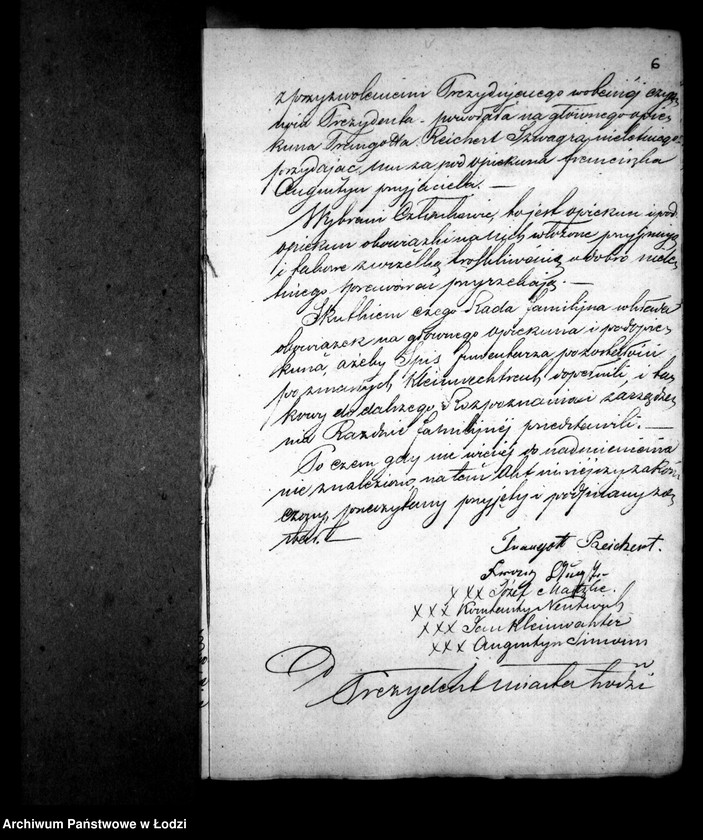 6
z przyzwoleniem Prezydującego w obecnéj czyn,
ności Prezydenta – powołała na głównego opie,
kuna Traugotta Reichert Szwagra nieletniego
przydając mu za pod opiekuna Franciszka
Augustyn przyjaciela. —
Wybrani Członkowie, to jest opiekun i pod,
opiekun obowiązki na nich włożone przyjmują
i takowe z wszelką troskliwością o dobro niele,
tniego sprawować przyrzekają. —
Skutkiem czego Rada familijna wkłada
obowiązek na głównego opiekuna i podopie,
kuna, ażeby Spis Inwentarza pozostałości
po zmarłych Kleinwechtrach dopełnili, i ta,
kowy do dalszego Rozpoznania i zarządze,
nia Radzie familijnéj przedstawili. —
Po czem gdy nic więcéj do nadmienienia
nie znaleziono, na tém Akt niniejszy zakoń,
czony, przeczytany przyjęty i podpisany zo,
stał. —
Traugott Reichert.
Franz
XXX Józef
XXX Konstanty Neutwich
XXX Jan Kleinwähter
XXX Augustyn Simonn
Prezydent miasta Łodzi
Archiwum Państwowe w Łodzi